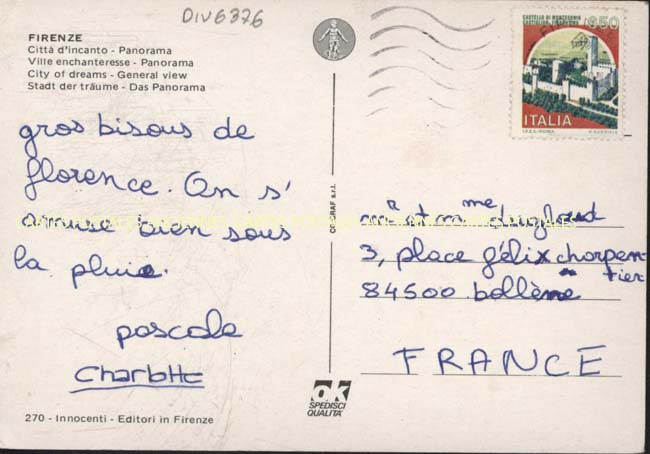 DIV6376
FIRENZE
Città d'incanto - Panorama
Ville enchanteresse - Panorama
City of dreams - General view
Stadt der träume - Das Panorama
gros bisous de
florence. On s'
amuse bien sous
la pluie.
pascale
Charlotte
270 - Innocenti - Editori in Firenze
CECGRAF s.r.l.
OK
SPEDISCI
QUALITÀ
CASTELLO DI MONTECCHIO
CASTIGLION FIORENTINO
650
ITALIA
I.P.Z.S. - ROMA
mr et mme
3, place félix charpen-
tier
84500 bollène
FRANCE